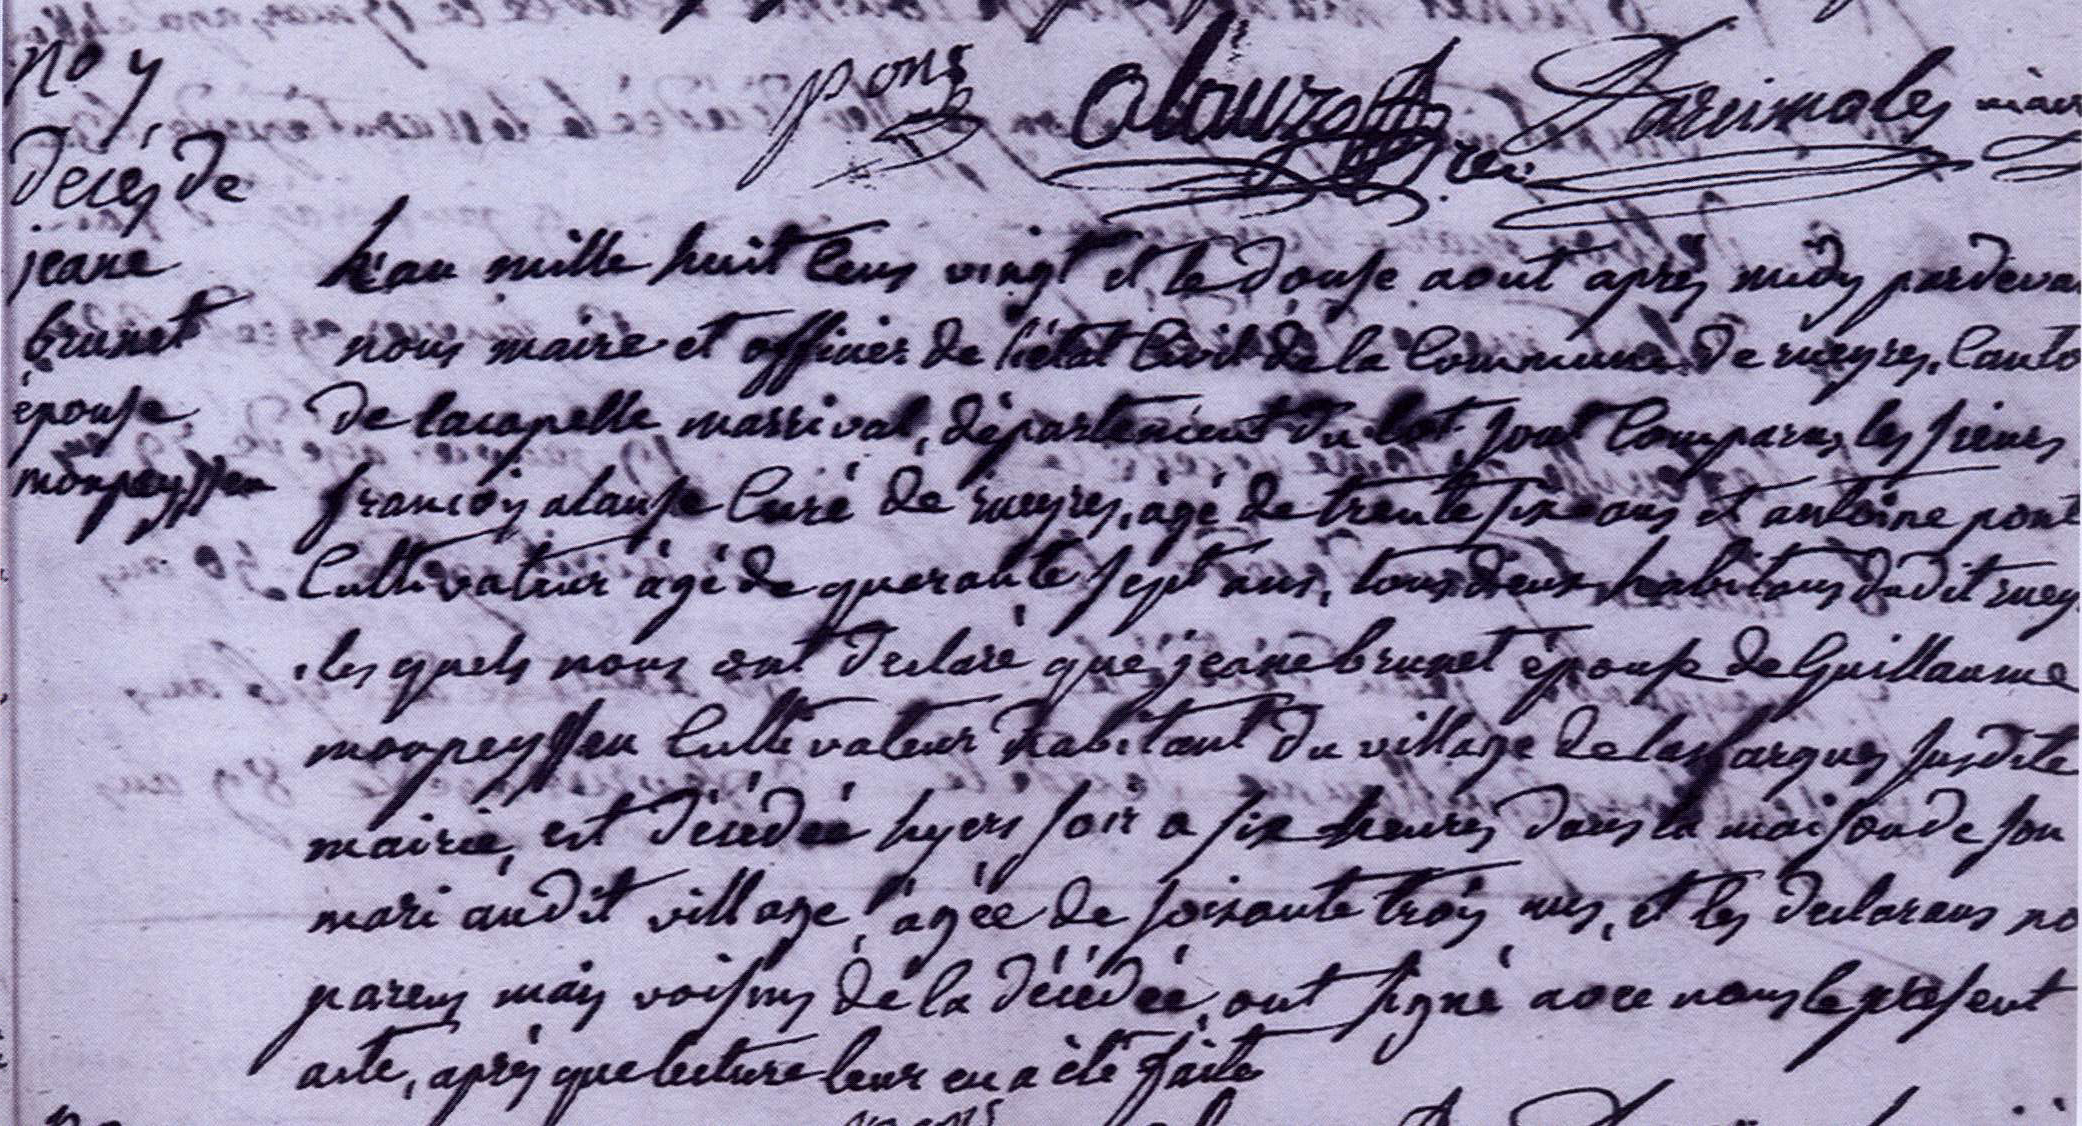 no 7
pons alauze Darnimoles maire
décés de
jeane
brunet
épouse
monpeyssen
L'an mille huit cens vingt et le douse aout après midy pardeva
nous maire et officier de l'état civil de la commune de rueyres, canto
de lacapelle marrival, département du lot, sont comparus les sieurs
francois alause curé de rueyres, agé de trente six ans et antoine pons
cultivateur agé de quarante sept ans, tous deux habitans dudit ruey
les quels nous ont declaré que jeane brunet épouse de Guillaume
monpeyssen cultivateur habitant du village de lasfargues susdite
mairie, est décédée hyers soir a six heures dans la maison de son
mari audit village, agée de soixante trois ans, et les declarans no
parens mais voisins de la décédée, ont signé avec nous le présent
acte, après que lecture leur en a été faite